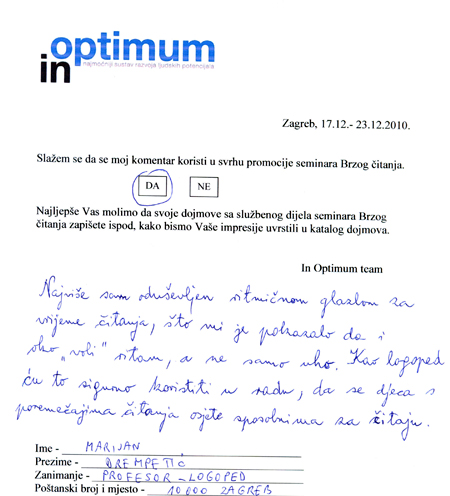 optimum
in
najmoćniji sustav razvoja ljudskih potencijala
Zagreb, 17.12.- 23.12.2010.
Slažem se da se moj komentar koristi u svrhu promocije seminara Brzog čitanja.
DA NE
Najljepše Vas molimo da svoje dojmove sa službenog dijela seminara Brzog
čitanja zapišete ispod, kako bismo Vaše impresije uvrstili u katalog dojmova.
In Optimum team
Najviše sam oduševljen ritmičnom glazbom za
vrijeme čitanja, što mi je pokazalo da i
oko „voli" ritam, a ne samo uho. Kao logoped
ću to sigurno koristiti u radu, da se djeca s
poremećajima čitanja osjete sposobnima za čitaju.
Ime - MARIJAN
Prezime - DREMPETIĆ
Zanimanje - PROFESOR - LOGOPED
Poštanski broj i mjesto - 10 000 ZAGREB